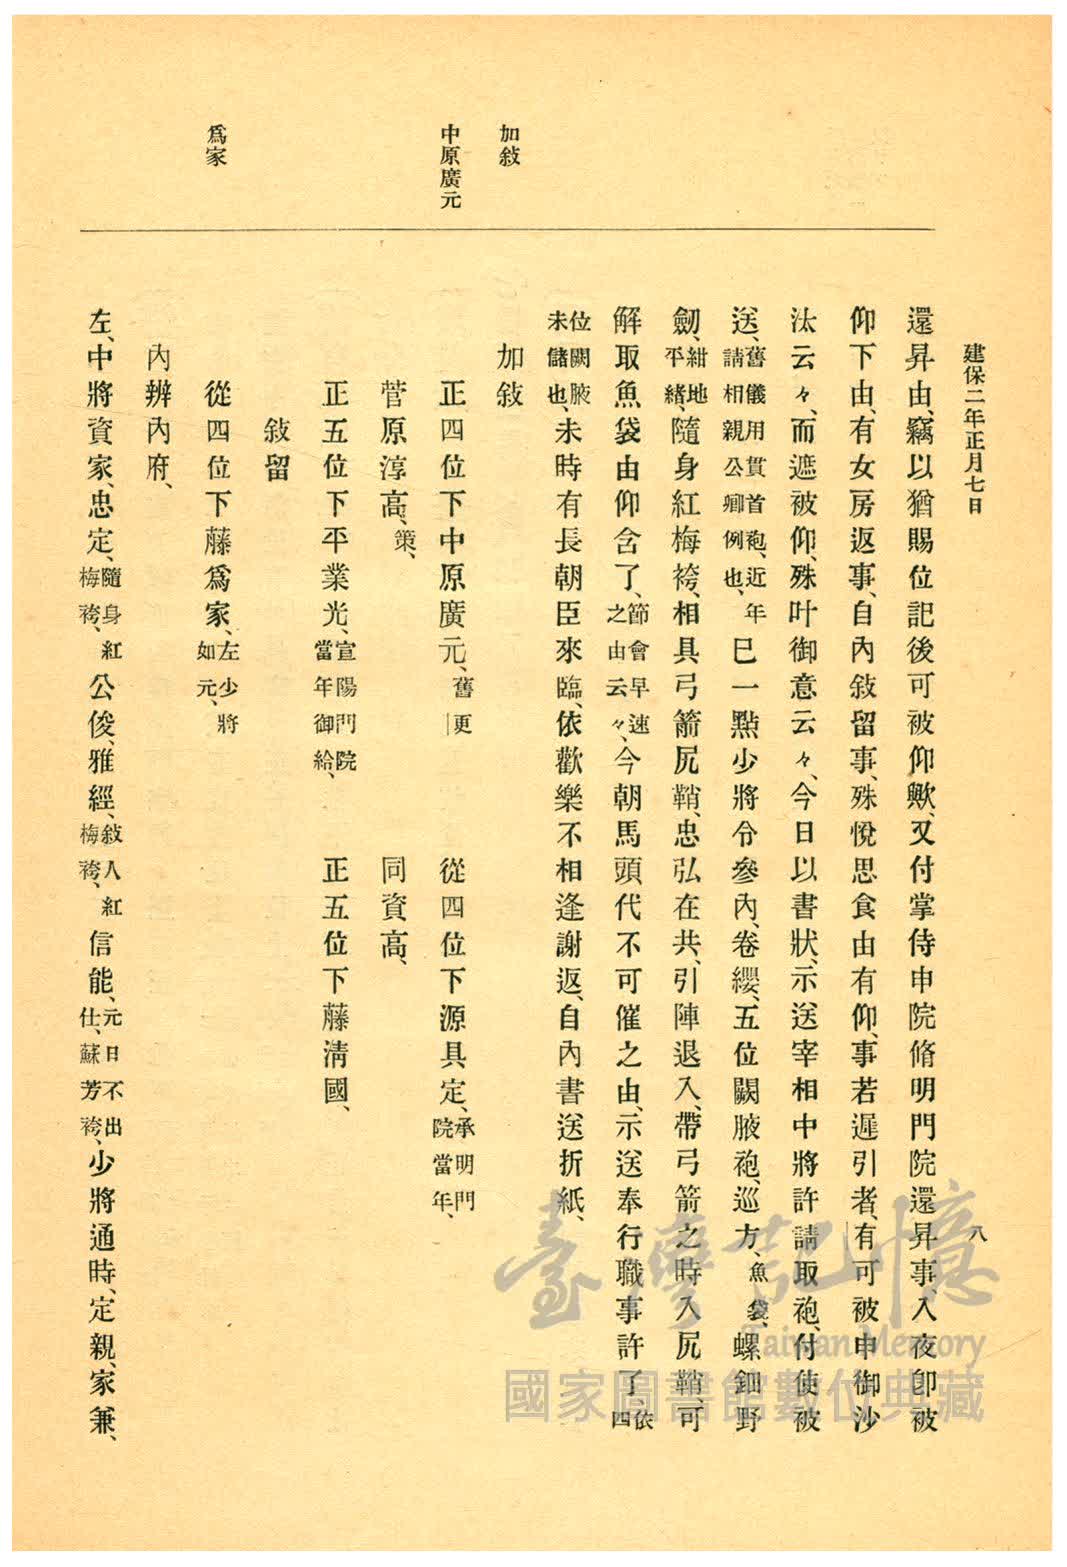 建保二年正月七日
八
還昇由、竊以猶賜位記後可被仰歟、又付掌侍申院脩明門院還昇事入夜卽被
仰下由、有女房返事、自內敍留事、殊悅思食由有仰、事若遲引者、有可被申御沙
汰云々、而遮被仰、殊叶御意云々、今日以書狀、示送宰相中將許請取袍、付使被
送、舊儀用貫首袍、近年請相親公卿例也、巳一點少將令參內、卷纓、五位闕腋袍、巡方、魚袋、螺鈿野
劒、紺地平緖、隨身紅梅袴、相具弓箭尻鞘、忠弘在共、引陣退入、帶弓箭之時入尻鞘、可
解取魚袋由仰含了、節會早速之由云々、今朝馬頭代不可催之由、示送奉行職事許了、依四
位闕腋未儲也、未時有長朝臣來臨、依歡樂不相逢謝返、自內書送折紙、
加敍
加敍
正四位下中原廣元、舊更 從四位下源具定、承明門院當年、
中原廣元
菅原淳高、策、 同資高、
正五位下平業光、宣陽門院當年御給、 正五位下藤淸國、
敍留
從四位下藤爲家、左少將如元、
爲家
內辨內府、
左、中將資家、忠定、隨身紅梅袴、公俊、雅經、敍人紅梅袴、信能、元日不出仕、蘇芳袴、少將通時、定親、家兼、
臺灣記憶
Taiwan Memory
國家圖書館數位典藏